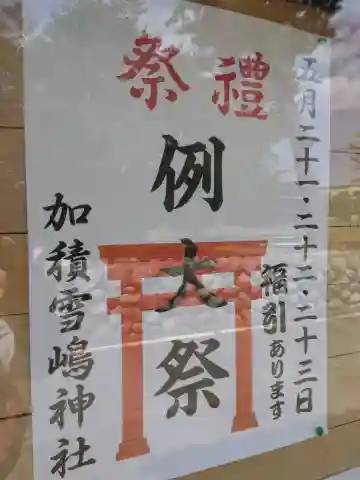 五月二十一・二十二・二十三日
福引あります
祭禮
例大祭
加積雪嶋神社